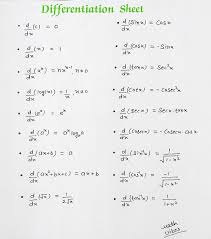 Differentiation Sheet
• d/dx (c) = 0
• d/dx (x) = 1
• d/dx (xⁿ) = nxⁿ⁻¹ n≠0
• d/dx (log|x|) = 1/x x≠0
• d/dx (eˣ) = eˣ
• d/dx (aˣ) = aˣ logₑa
• d/dx (ax+b) = a
• d/dx (ax²+bx+c) = ax+b
• d/dx (√x) = 1/2√x
• d/dx (sinx) = cosx
• d/dx (cosx) = -sinx
• d/dx (tanx) = sec²x
• d/dx (cotx) = -cosec²x
• d/dx (secx) = secx·tanx
• d/dx (cosecx) = -cosecx·cotx
• d/dx (sin⁻¹x) = 1/√1-x²
• d/dx (cos⁻¹x) = -1/√1-x²
• d/dx (tan⁻¹x) = 1/1+x²
math
vibes